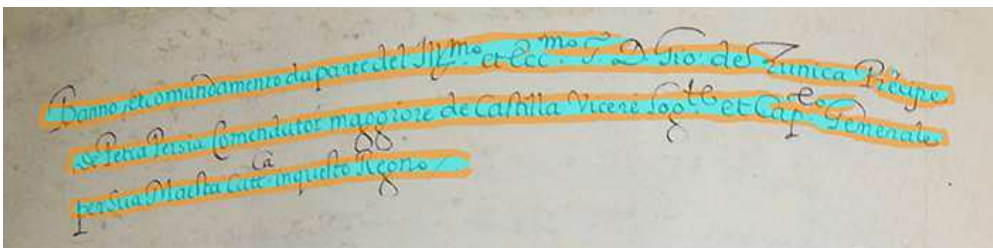 Banno, et comandamento da parte del Ill.mo et Ecc.mo S. D. Gio. de Zunica Prēcipe
de Petra Persia Comendator maggiore de Castilla Vicerè Log.te et Cap.o Generale
per sua Maestà Catt.ca in questo Regno